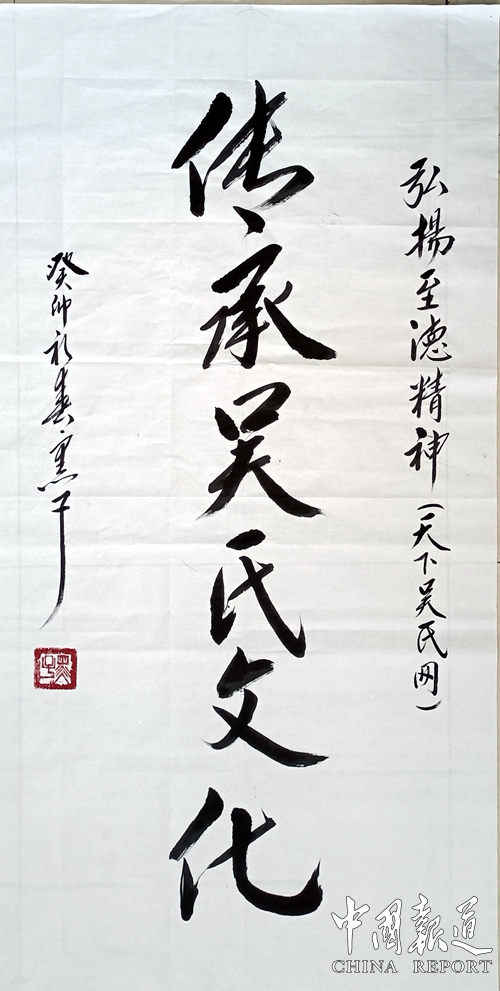 弘揚至德精神(天下吴氏网)
传承吴氏文化
癸卯初春·墨子
中国報道
CHINA REPORT